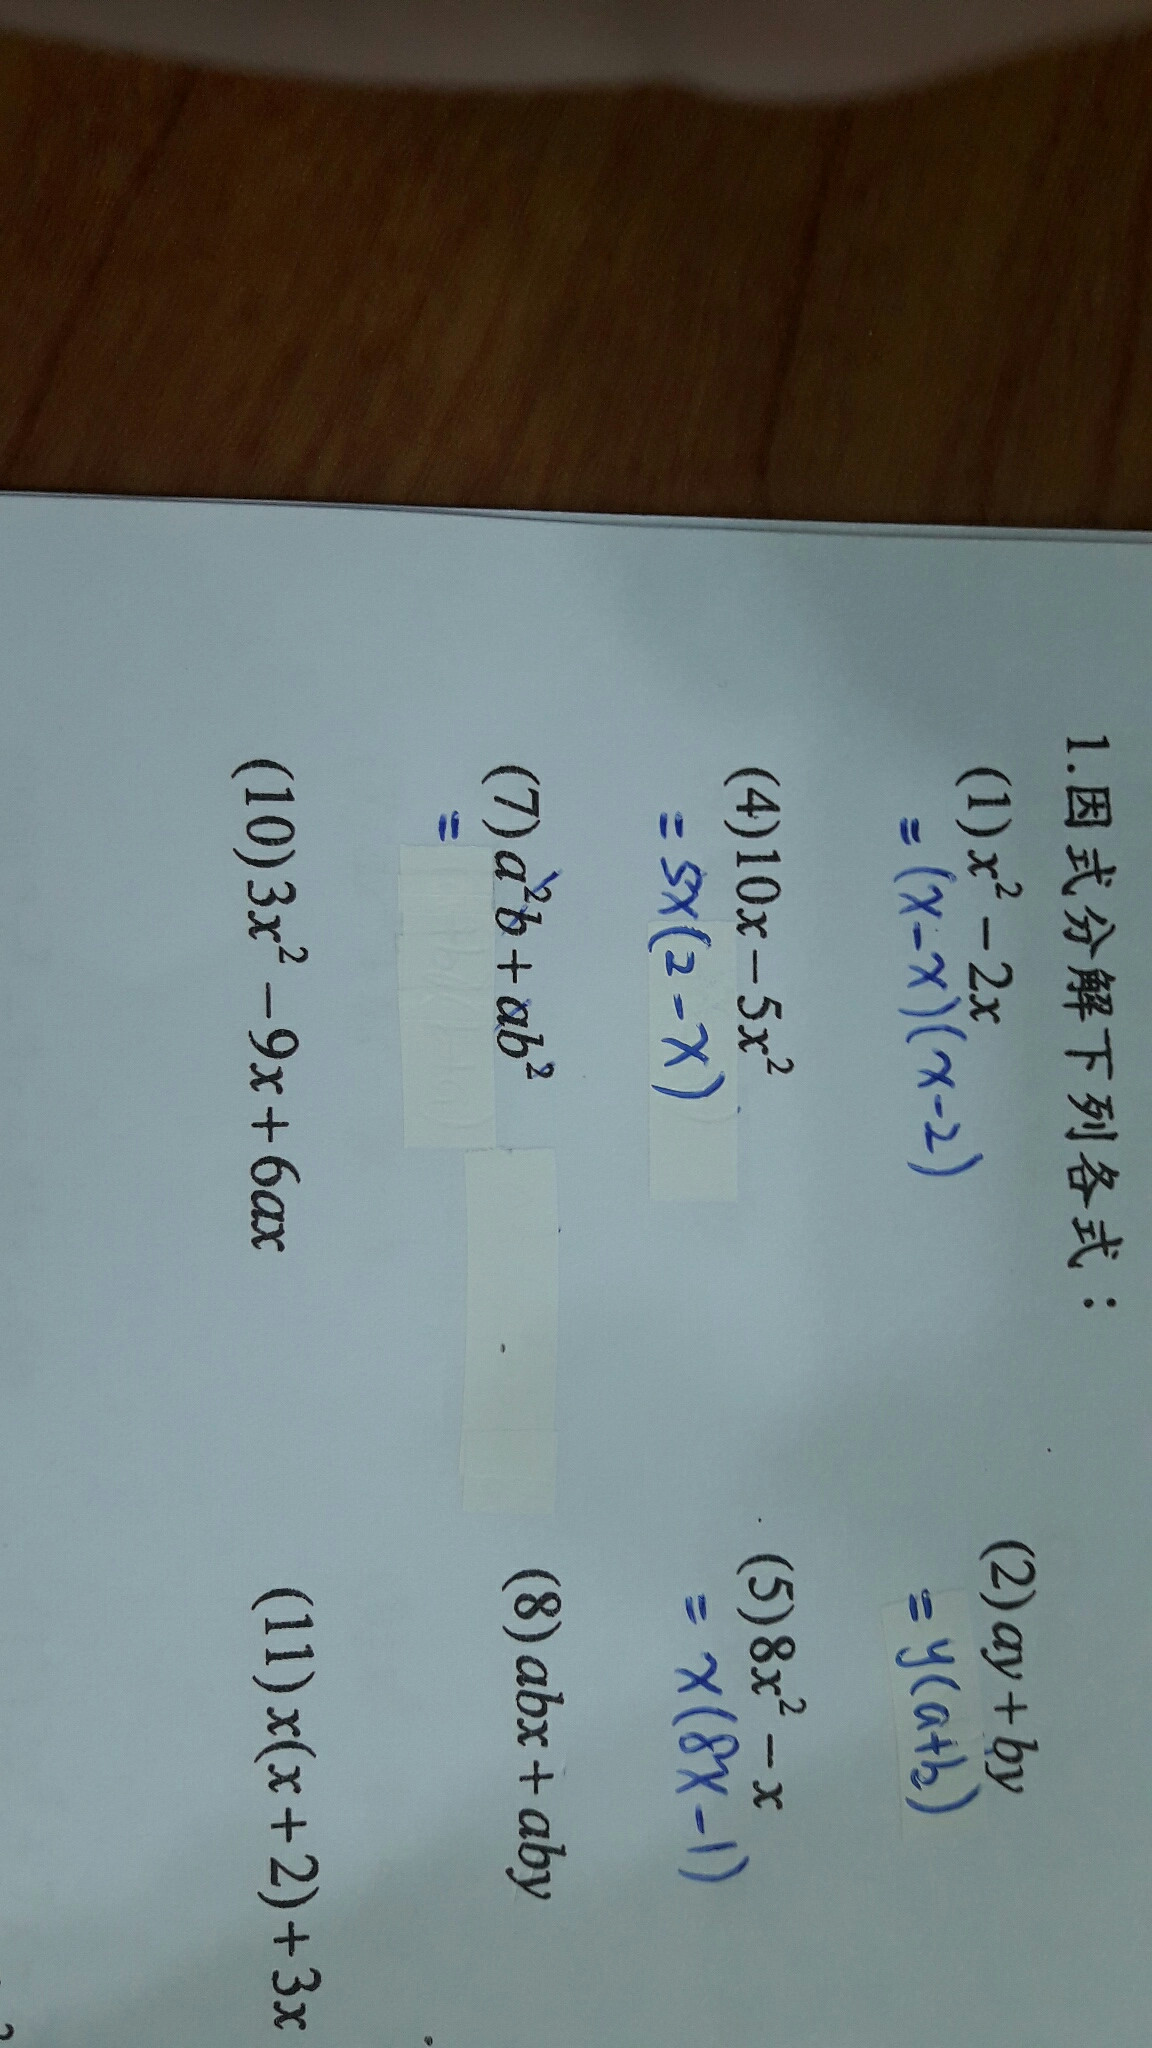 1.因式分解下列各式：
(1) x² − 2x
= (x−x)(x−2)
(2) ay + by
= y(a+b)
(4) 10x − 5x²
= 5x(2−x)
(5) 8x² − x
= x(8x−1)
(7) a²b + ab²
=
(8) abx + aby
(10) 3x² − 9x + 6ax
(11) x(x + 2) + 3x